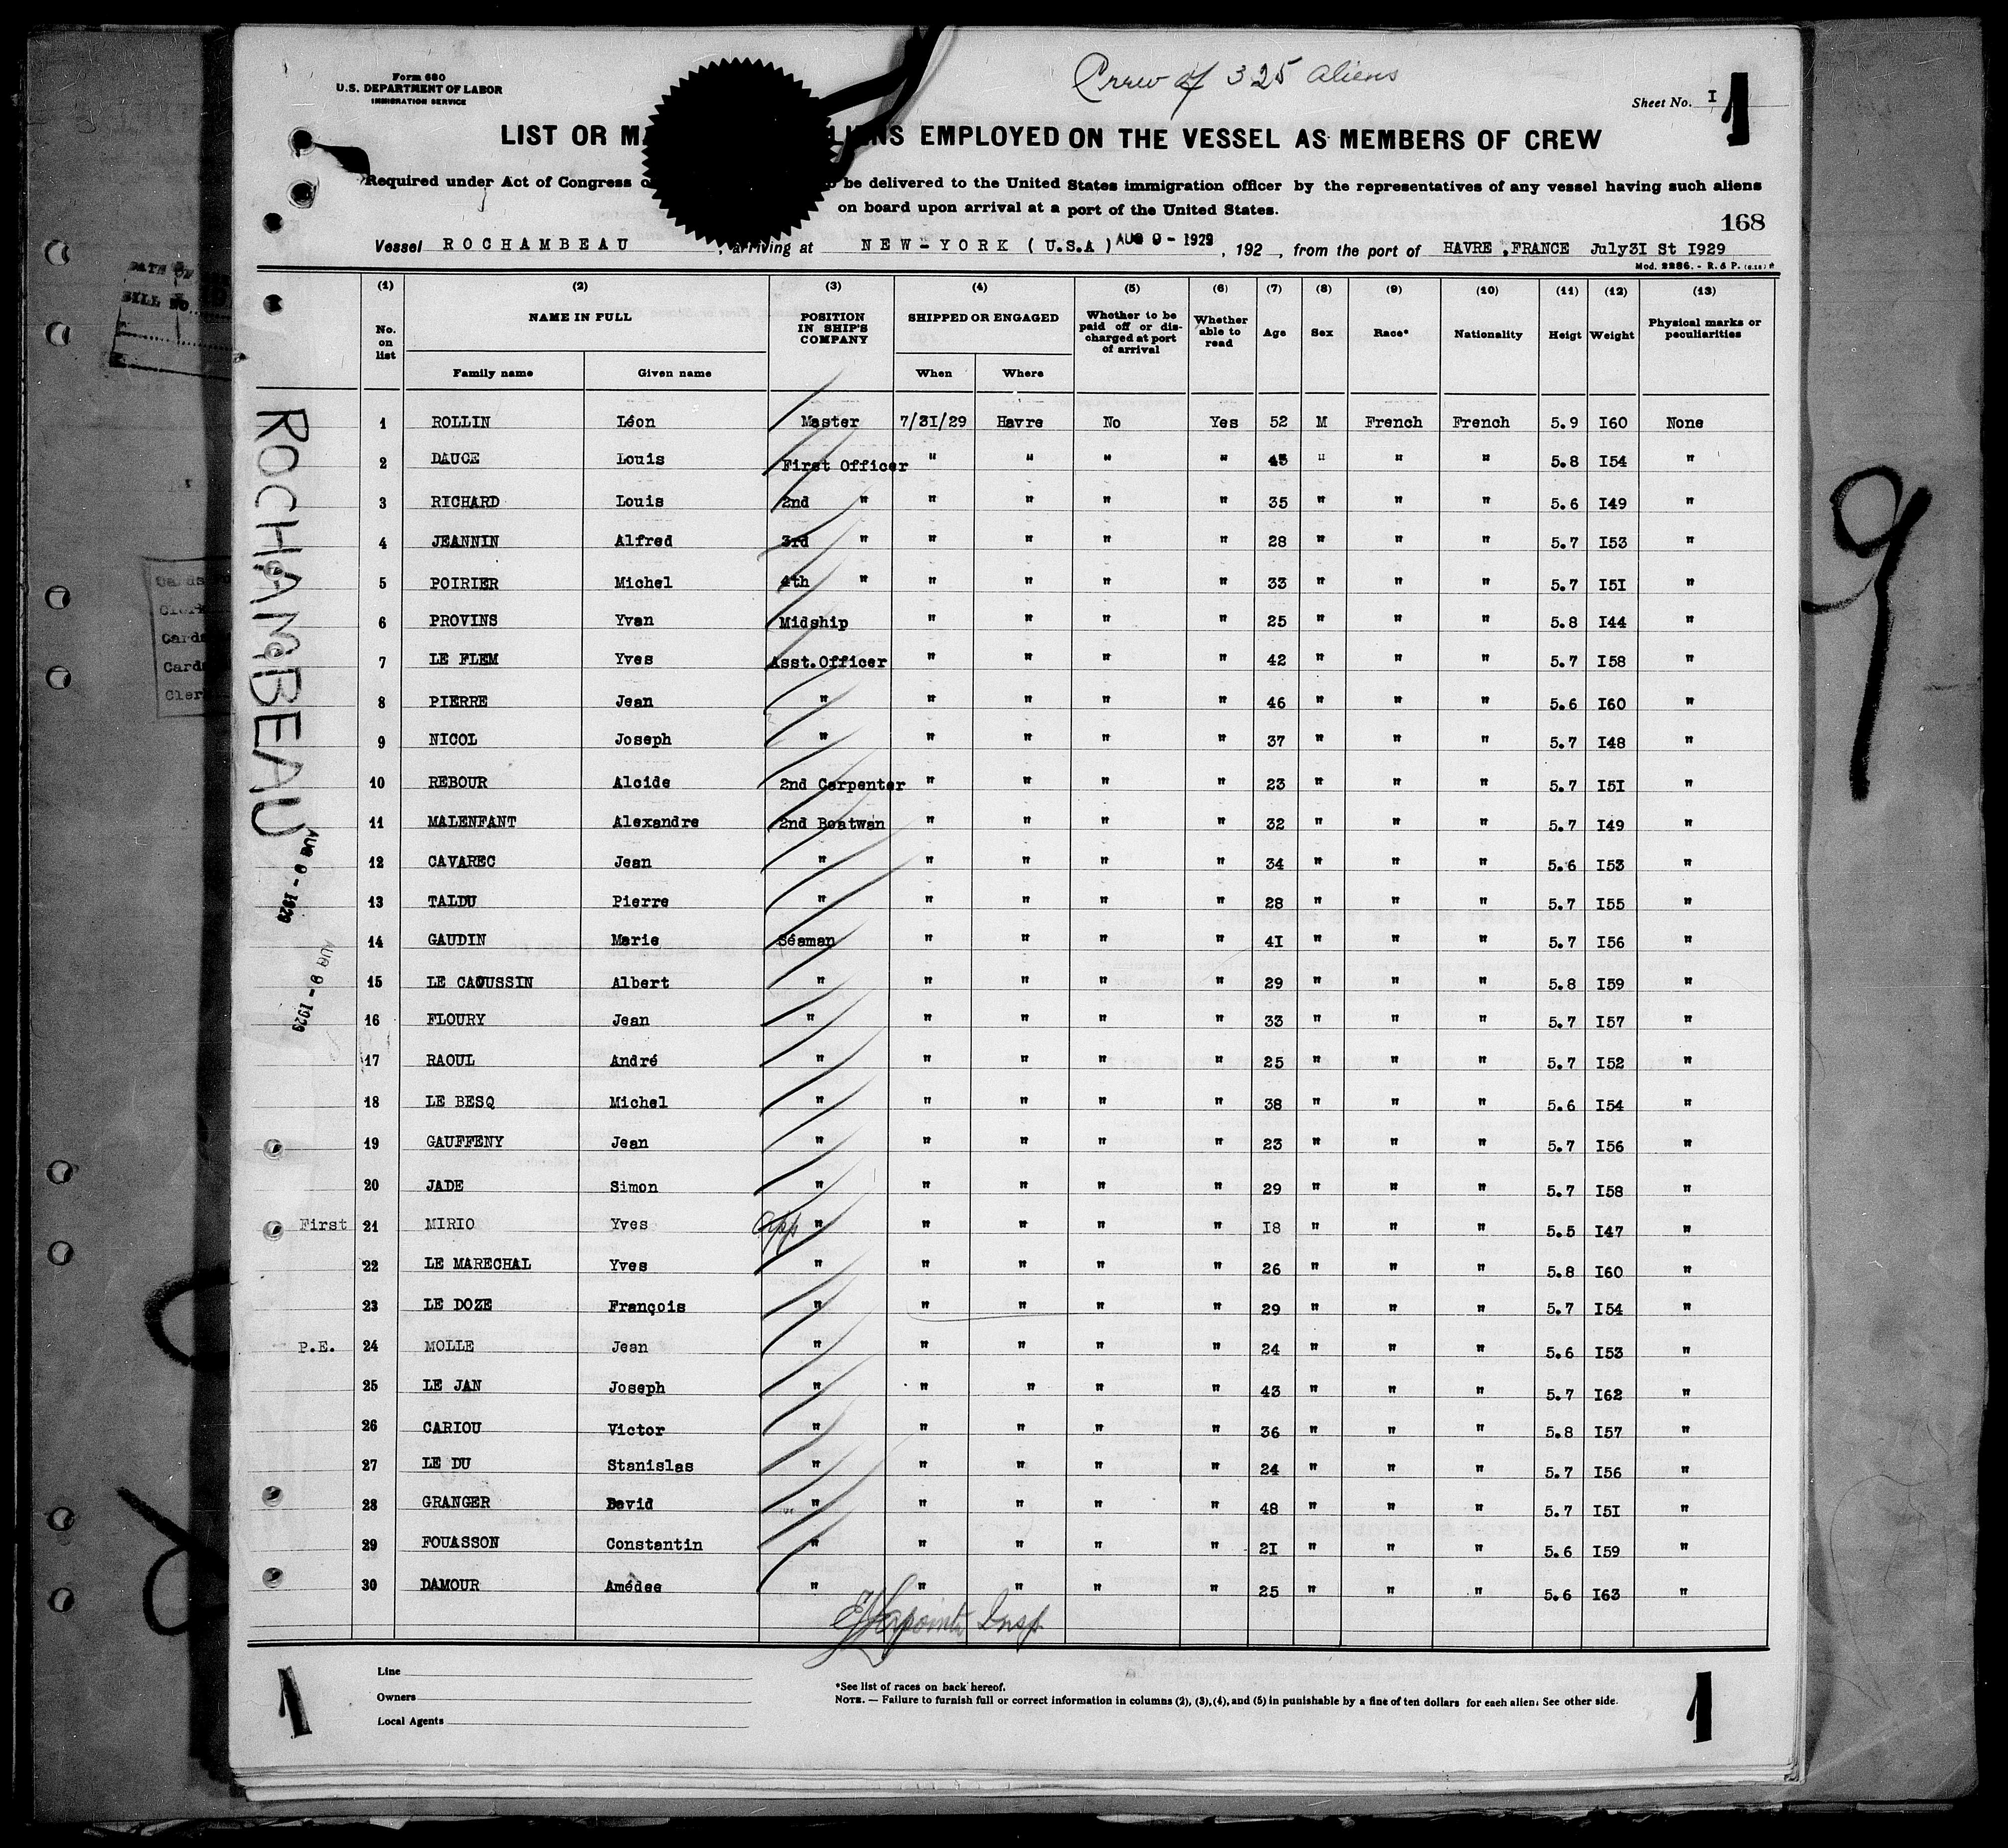 Crew of 325 aliens
Form 680
U.S. DEPARTMENT OF LABOR
IMMIGRATION SERVICE
Sheet No. I
1
LIST OR EMPLOYED ON THE VESSEL AS MEMBERS OF CREW
Required under Act of Congress be delivered to the United States immigration officer by the representatives of any vessel having such aliens
on board upon arrival at a port of the United States.
168
Vessel ROCHAMBEAU , arriving at NEW-YORK (U.S.A) AUG 9 - 1929 , 192 , from the port of HAVRE ,FRANCE July31 St I929
Mod. 2286. - R. & P.
(1) (2) (3) (4) (5) (6) (7) (8) (9) (10) (11) (12) (13)
No. on list NAME IN FULL Family name Given name POSITION IN SHIP'S COMPANY SHIPPED OR ENGAGED When Where Whether to be paid off or discharged at port of arrival Whether able to read Age Sex Race* Nationality Heigt Weight Physical marks or peculiarities
1 ROLLIN Léon Master 7/31/29 Havre No Yes 52 M French French 5.9 I60 None
2 DAUCE Louis First Officer " " " " 45 " " " 5.8 I54 "
3 RICHARD Louis 2nd " " " " " 35 " " " 5.6 I49 "
4 JEANNIN Alfred 3rd " " " " " 28 " " " 5.7 I53 "
5 POIRIER Michel 4th " " " " " 33 " " " 5.7 I5I "
6 PROVINS Yvan Midship " " " " 25 " " " 5.8 I44 "
7 LE FLEM Yves Asst.Officer " " " " 42 " " " 5.7 I58 "
8 PIERRE Jean " " " " " 46 " " " 5.6 I60 "
9 NICOL Joseph " " " " " 37 " " " 5.7 I48 "
10 REBOUR Alcide 2nd Carpenter " " " " 23 " " " 5.7 I5I "
11 MALENFANT Alexandre 2nd Boatwan " " " " 32 " " " 5.7 I49 "
12 CAVAREC Jean " " " " " 34 " " " 5.6 I53 "
13 TALDU Pierre " " " " " 28 " " " 5.7 I55 "
14 GAUDIN Marie Séaman " " " " 4I " " " 5.7 I56 "
15 LE CAOUSSIN Albert " " " " " 29 " " " 5.8 I59 "
16 FLOURY Jean " " " " " 33 " " " 5.7 I57 "
17 RAOUL André " " " " " 25 " " " 5.7 I52 "
18 LE BESQ Michel " " " " " 38 " " " 5.6 I54 "
19 GAUFFENY Jean " " " " " 23 " " " 5.7 I56 "
20 JADE Simon " " " " " 29 " " " 5.7 I58 "
First 21 MIRIO Yves app " " " " " I8 " " " 5.5 I47 "
22 LE MARECHAL Yves " " " " " 26 " " " 5.8 I60 "
23 LE DOZE François " " " " " 29 " " " 5.7 I54 "
P.E. 24 MOLLE Jean " " " " " 24 " " " 5.6 I53 "
25 LE JAN Joseph " " " " " 43 " " " 5.7 I62 "
26 CARIOU Victor " " " " " 36 " " " 5.8 I57 "
27 LE DU Stanislas " " " " " 24 " " " 5.7 I56 "
28 GRANGER David " " " " " 48 " " " 5.7 I5I "
29 FOUASSON Constantin " " " " " 2I " " " 5.6 I59 "
30 DAMOUR Amédee " " " " " 25 " " " 5.6 I63 "
Insp
Line
Owners
Local Agents
*See list of races on back hereof.
NOTE. — Failure to furnish full or correct information in columns (2), (3), (4), and (5) in punishable by a fine of ten dollars for each alien. See other side.
1
1
ROCHAMBEAU
AUG 9 - 1929
AUG 9 - 1929
9